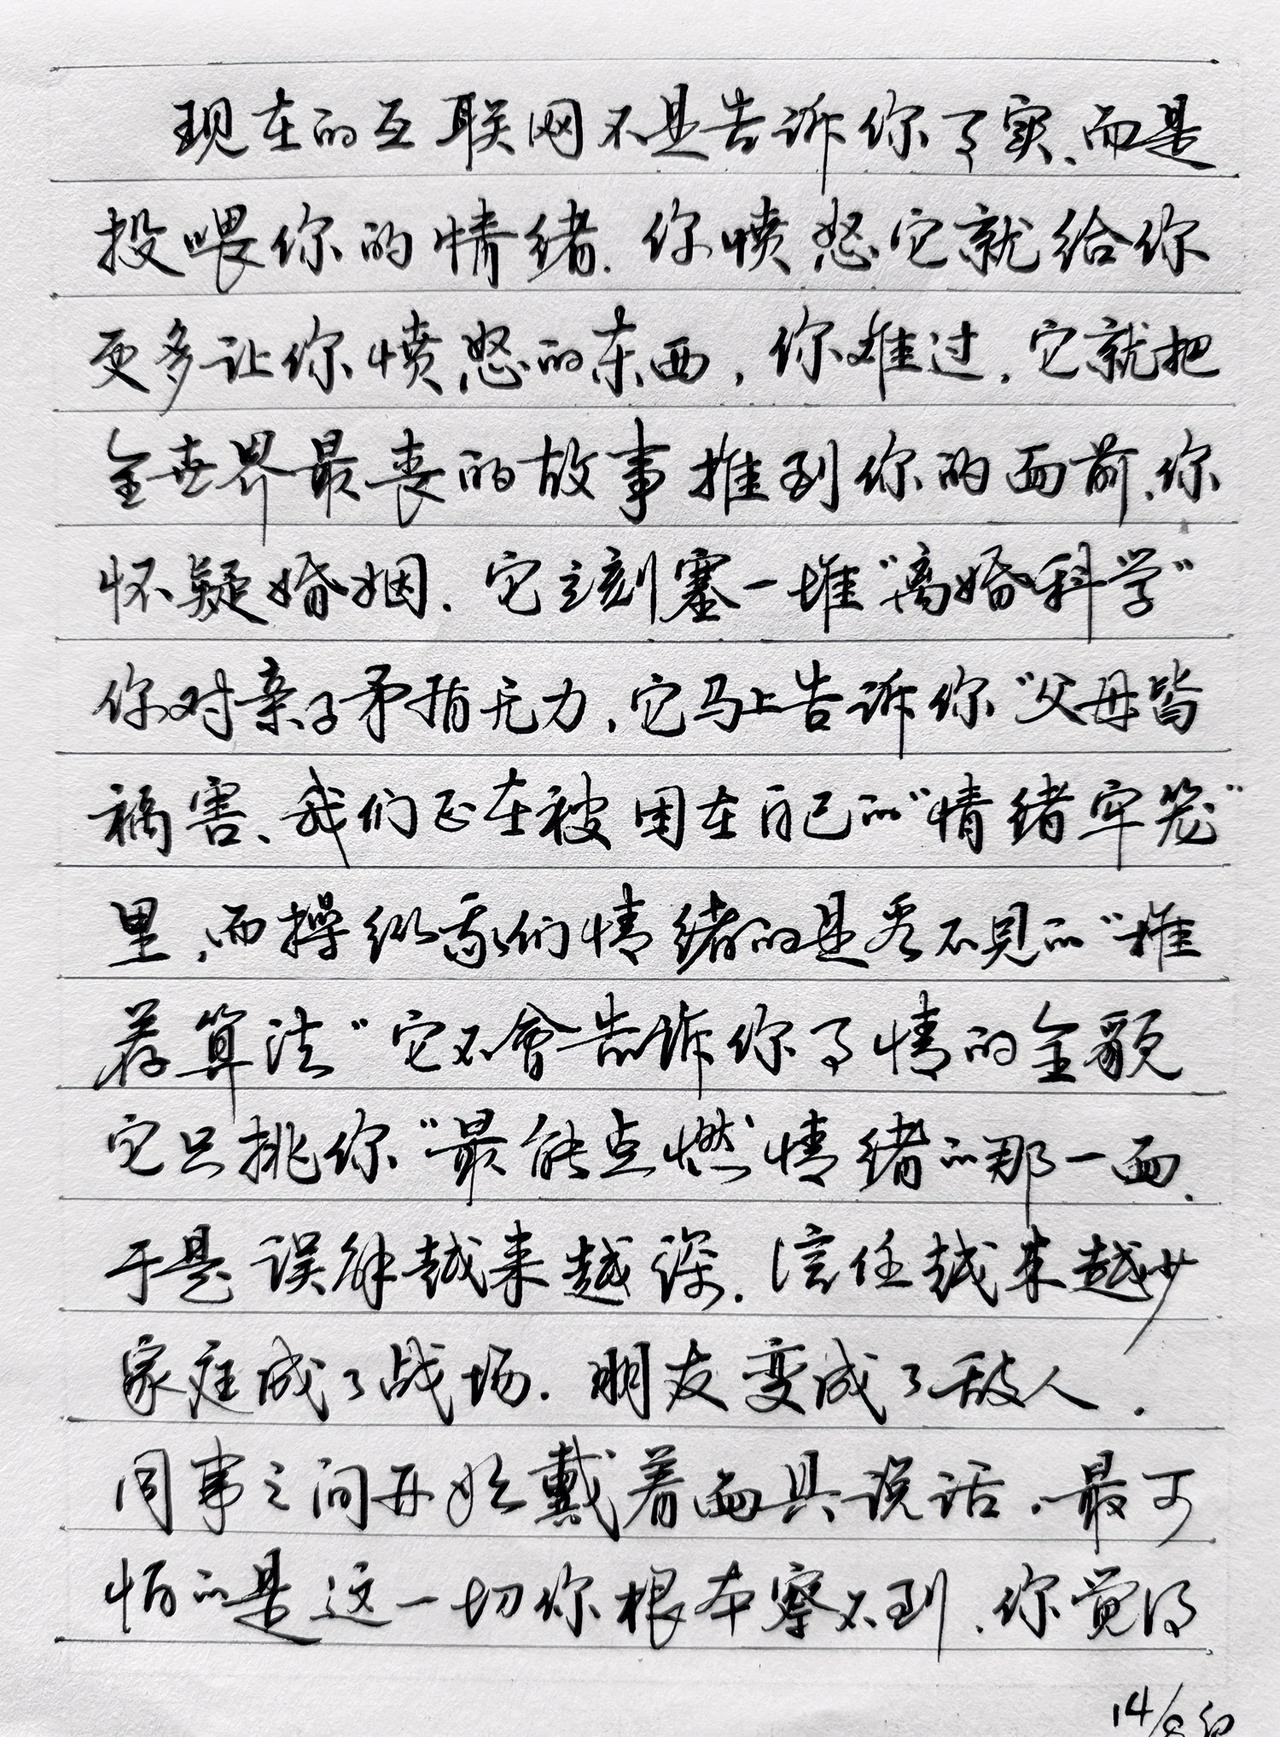 现在的互联网不是告诉你事实、而是
投喂你的情绪. 你愤怒它就给你
更多让你愤怒的东西，你难过，它就把
全世界最丧的故事推到你的面前、你
怀疑婚姻. 它立刻塞一堆“离婚科学”
你对亲子矛盾无力，它马上告诉你“父母皆
祸害、我们正在被困在自己的“情绪牢笼”
里，而操纵我们情绪的是看不见的“推
荐算法”它不會告诉你事情的全貌
它只挑你“最能点燃”情绪的那一面.
于是误解越来越深. 信任越来越少
家庭成了战场. 朋友变成了敌人.
同事之间开始戴着面具说话. 最可
怕的是这一切你根本察不到. 你觉得
14/8